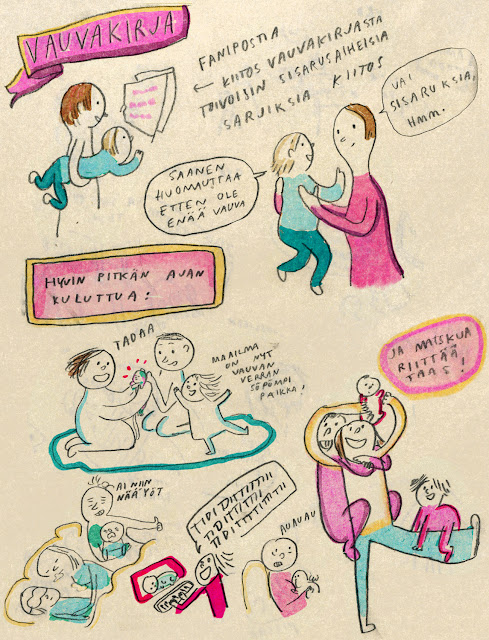 VAUVAKIRJA
FANIPOSTIA
← KIITOS VAUVAKIRJASTA
TOIVOISIN SISARUSAIHEISIA
SARJIKSIA KIITOS
VAI
SISARUKSIA,
HMM.
SAANEN
HUOMAUTTAA
ETTEN OLE
ENÄÄ VAUVA
HYVIN PITKÄN AJAN
KULUTTUA:
TADAA
MAAILMA
ON NYT
VAUVAN
VERRAN
SÖPÖMPI
PAIKKA!
JA MAISKUA
RIITTÄÄ
TAAS!
AI NIIN
NÄÄ YÖT
TIDIDITTITTII
TIDITTITTII
TIDITTITTITTII
AUAUAU